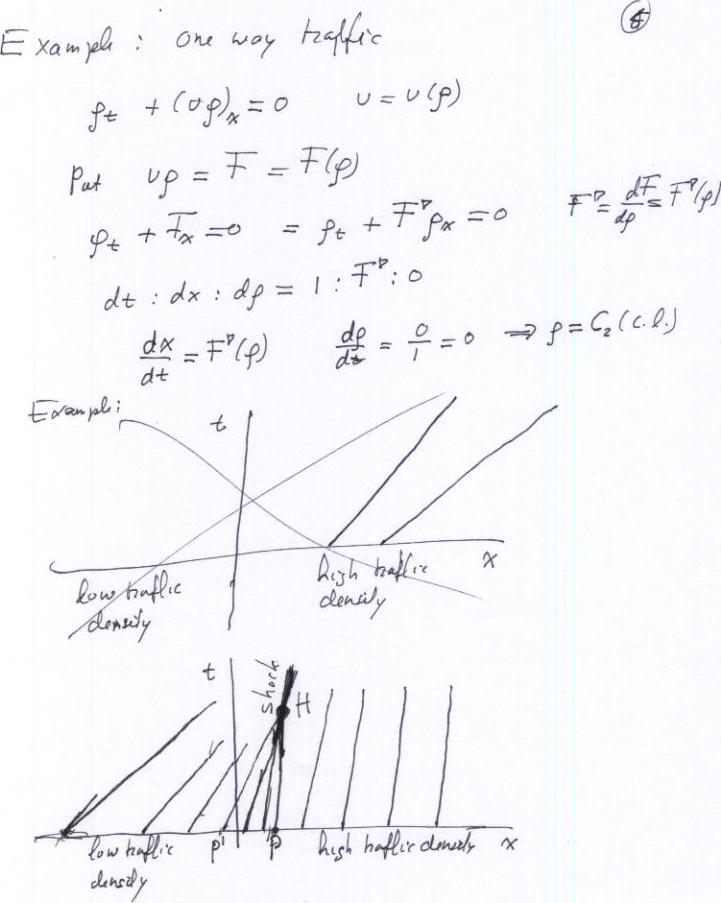 ⑧
Example : one way traffic
ρt + (υρ)x = 0 υ = υ(ρ)
Put υρ = F = F(ρ)
ρt + Fx = 0 = ρt + F'ρx = 0 F' = dF/dρ = F'(ρ)
dt : dx : dρ = 1 : F' : 0
dx/dt = F'(ρ) dρ/dt = 0/1 = 0 ⇒ ρ = C₂ (c.l.)
Example:
t
x
low traffic
density
high traffic
density
t
shock
H
low traffic
density
P'
P
high traffic density
x